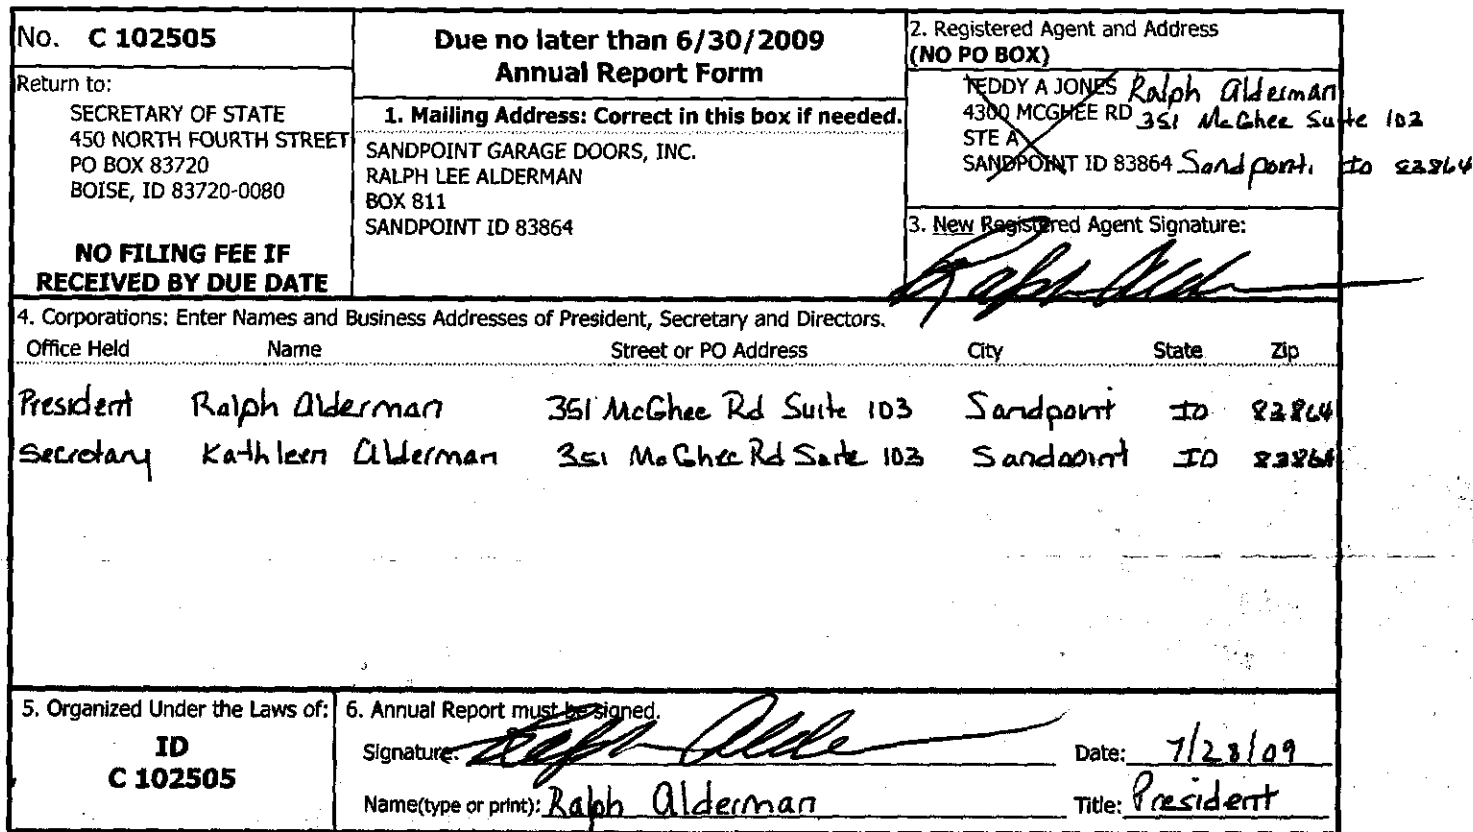 No. C 102505
Return to:
SECRETARY OF STATE
450 NORTH FOURTH STREET
PO BOX 83720
BOISE, ID 83720-0080
NO FILING FEE IF
RECEIVED BY DUE DATE
Due no later than 6/30/2009
Annual Report Form
1. Mailing Address: Correct in this box if needed.
SANDPOINT GARAGE DOORS, INC.
RALPH LEE ALDERMAN
BOX 811
SANDPOINT ID 83864
2. Registered Agent and Address
(NO PO BOX)
TEDDY A JONES Ralph Alderman
4300 MCGHEE RD 351 McGhee Suite 102
STE A
SANDPOINT ID 83864 Sandpoint, ID 83864
3. New Registered Agent Signature:
Ralph Alder
4. Corporations: Enter Names and Business Addresses of President, Secretary and Directors.
Office Held Name Street or PO Address City State Zip
President Ralph Alderman 351 McGhee Rd Suite 103 Sandpoint ID 83864
Secretary Kathleen Alderman 351 McGhee Rd Suite 103 Sandpoint ID 83864
5. Organized Under the Laws of:
ID
C 102505
6. Annual Report must be signed.
Signature: Ralph Alde Date: 7/28/09
Name(type or print): Ralph Alderman Title: President